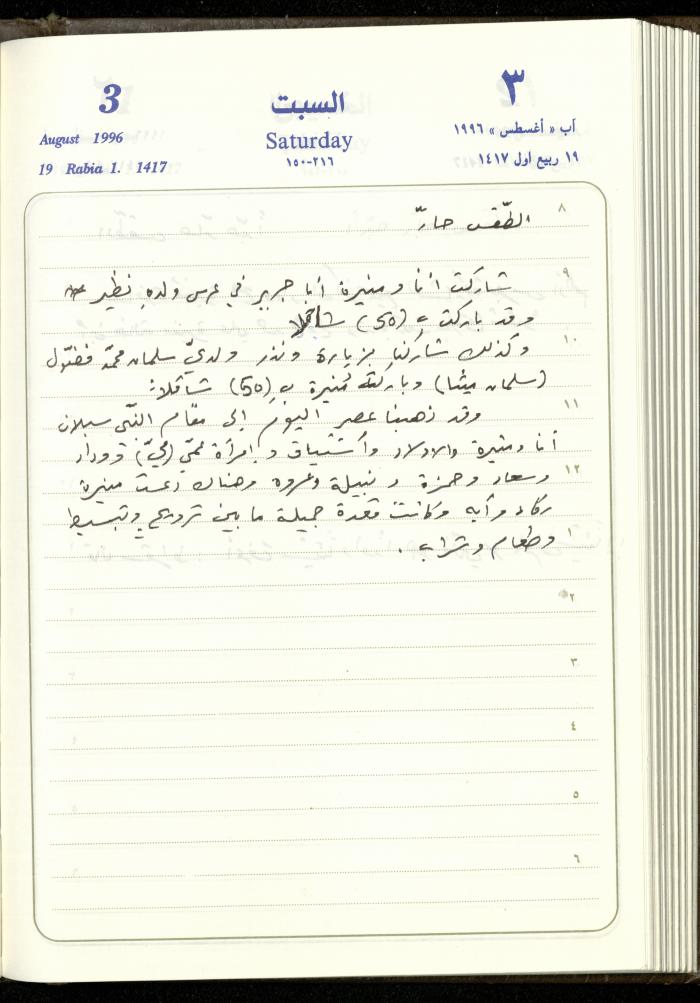 3 السبت ٣
August 1996 Saturday آب « أغسطس » ١٩٩٦
19 Rabia 1. 1417 ٢١٦-١٥٠ ١٩ ربيع اول ١٤١٧
٨ الطّقس حارّ
٩ شاركت أنا ومنيرة أبا جرير في عرس ولده نظير
وقد باركت بـ (50) شاقلا
١٠ وكذلك شاركنا بزيارة ونذر ولديّ سلمان محمّد فضّول
(سلمان ميثا) وباركته منيرة بـ (50) شاقلا:
١١ وقد ذهبنا عصر اليوم إلى مقام النّبي سبلان
أنا ومنيرة والاولاد وامرأة عمّي
١٢ وسعاد وحمزة ونبيلة وعروه وهناك دعت منيرة
وكانت قعدة جميلة ما بين ترويح وتبسيط
١ وطعام وشراب .
٢
٣
٤
٥
٦